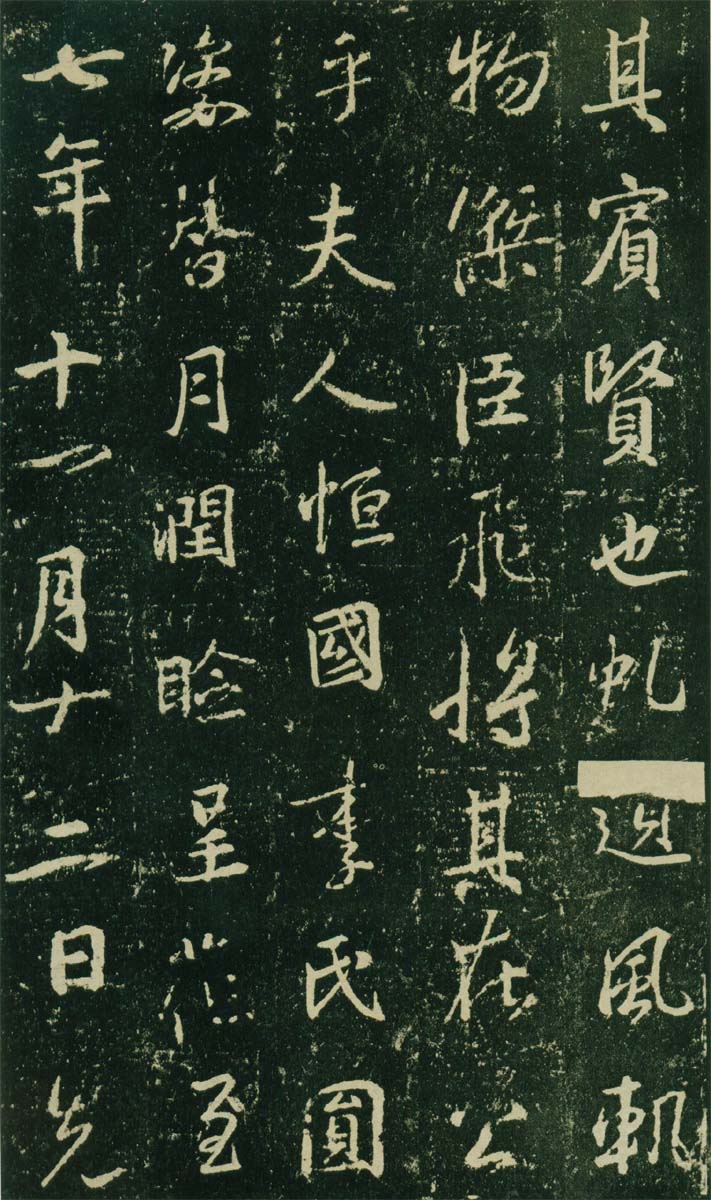 其賓賢也虬風軌
物傑臣飛將其在公
乎夫人恒國李氏圓
姿替月潤瞼呈花至
七年十一月十二日先